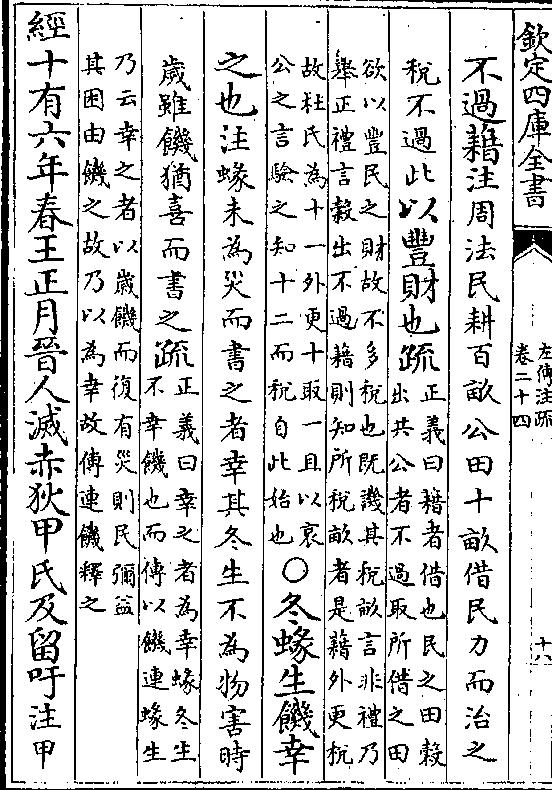 欽定四庫全書
左傳注疏
卷二十四
十八
不過藉注周法民耕百畝公田十畝借民力而治之
稅不過此以豐財也疏
正義曰藉者借也民之田穀
出共公者不過取所借之田
欲以豐民之財故不多稅也既譏其稅畝言非禮乃
舉正禮言穀出不過藉則知所稅畝者是藉外更稅
故杜氏為十一外更十取一且以哀
公之言驗之知十二而稅自此始也
〇冬蝝生饑幸
之也注蝝未為災而書之者幸其冬生不為物害時
歲雖饑猶喜而書之疏
正義曰幸之者為幸蝝冬生
不幸饑也而傳以饑連蝝生
乃云幸之者以歲饑而復有災則民彌益
其困由饑之故乃以為幸故傳連饑釋之
經十有六年春王正月晉人滅赤狄甲氏及留吁注甲